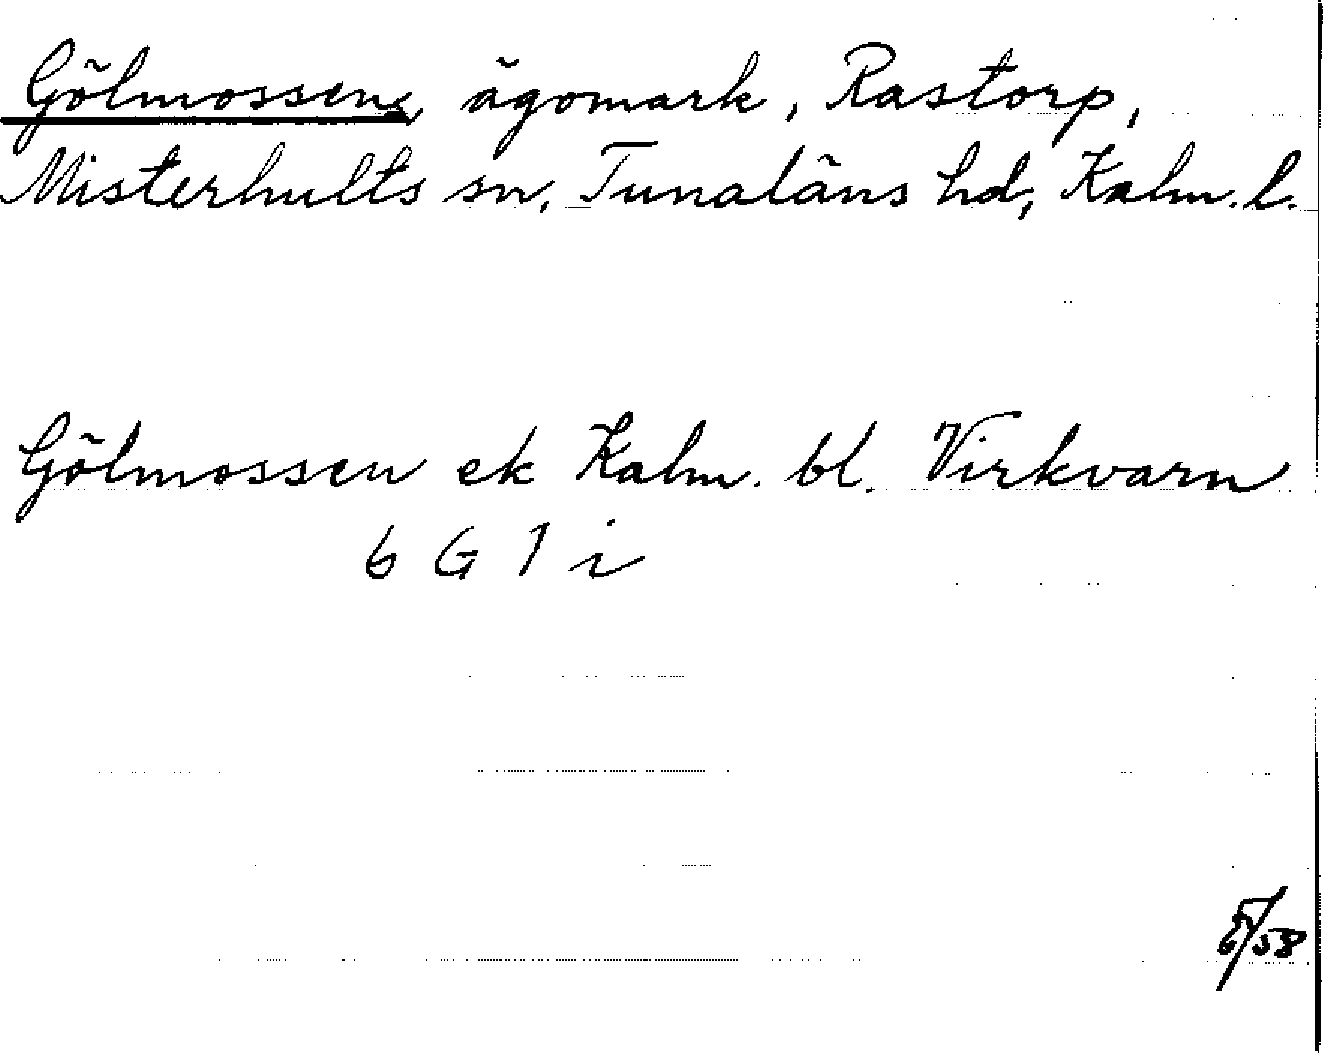 Gölmossen, ägomark, Rastorp,
Misterhults sn, Tunaläns hd, Kalm. l.
Gölmossen ek Kalm. bl. Virkvarn
6 G 1 i